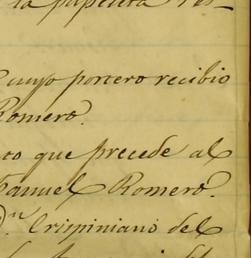 la papeleta res_
cuyo portero recibio
Romero.
to que precede al
Manuel Romero.
D.ⁿ Crispiniano del